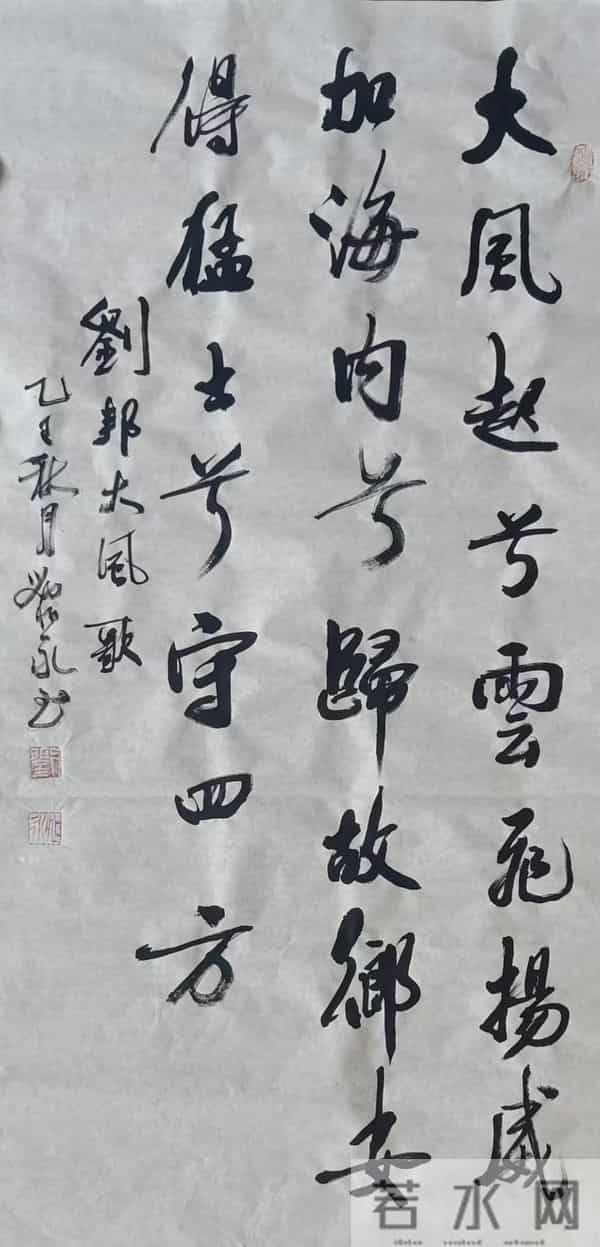 大風起兮雲飛揚威
加海内兮歸故鄉安
得猛士兮守四方
劉邦大風歌
乙巳秋月 永书
若水网